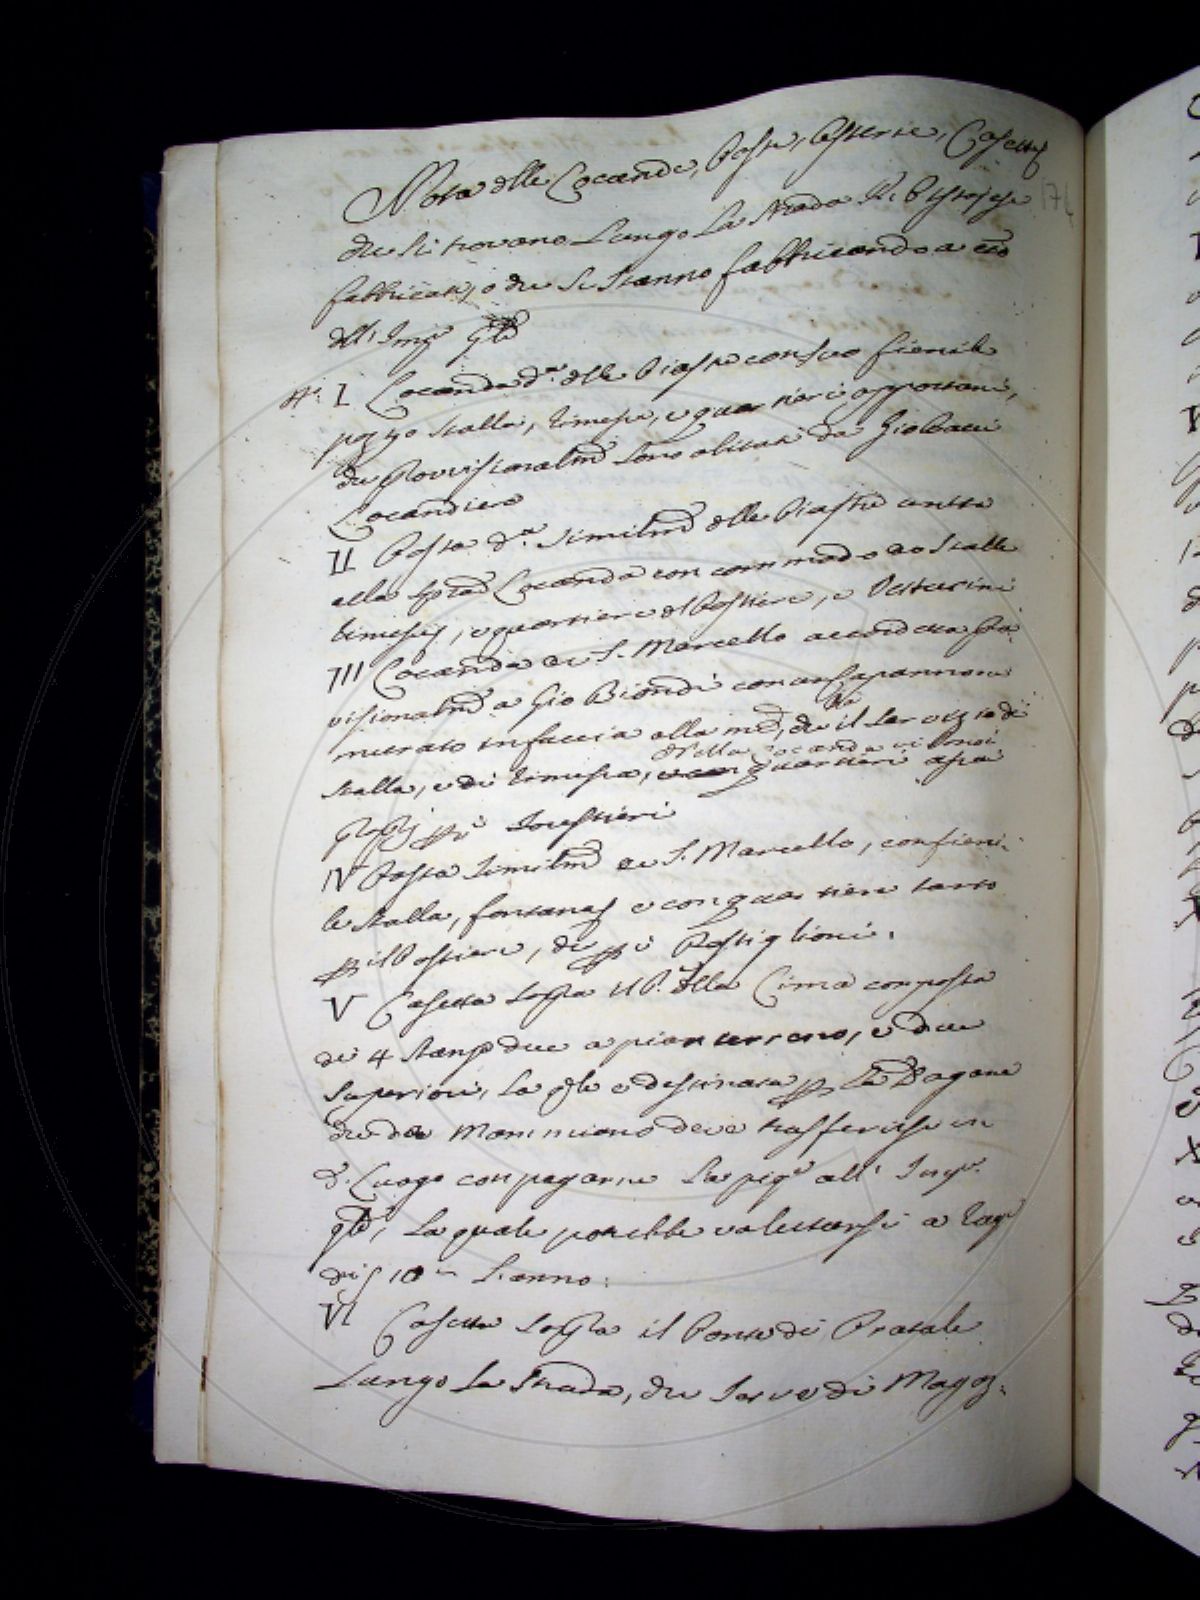 Nota dlle Locande, Poste, Osterie, Casette
174
che si trovano Lungo La Strada R. Pistojese
fabbricate, o che si stanno fabbricando a
dll' Imp.
N. I Locanda d.a dlle Piastre con suo fienile
pozzo stalla, rimessa, e quartieri appartati,
che Provvisionalmte sono abitati da Gio
Locandiere
II Posta d.a similmte dlle Piastre unita
alla Locanda con commodo di Stalle
rimesse, e quartiere dl Postiere, e Vetturini
III Locanda di S. Marcello accordata Pro
visionalmte a Gio Biondi con un Capannone
murato in faccia alla med., che il servizio di
dtta Locanda vi sono i
stalla, e di rimessa, quartieri
i Forestieri
IV Posta similmte di S. Marcello, con fieni:
le stalla, fontana, e con quartiere tanto
p il Postiere, che p i Postiglioni.
V Casetta sopra il P. dlla Cima composta
di 4 stanze due a pian terreno, e due
superiori, La qle è destinata p La Dogana
che da Mammiano deve trasferirsi in
d. Luogo con pagarne La pig. all' Imp.
qle, La quale potrebbe valutarsi a rag.
di 10 L'anno:
VI Casetta sopra il Ponte di Pratale
Lungo La Strada, che serve di Magaz: